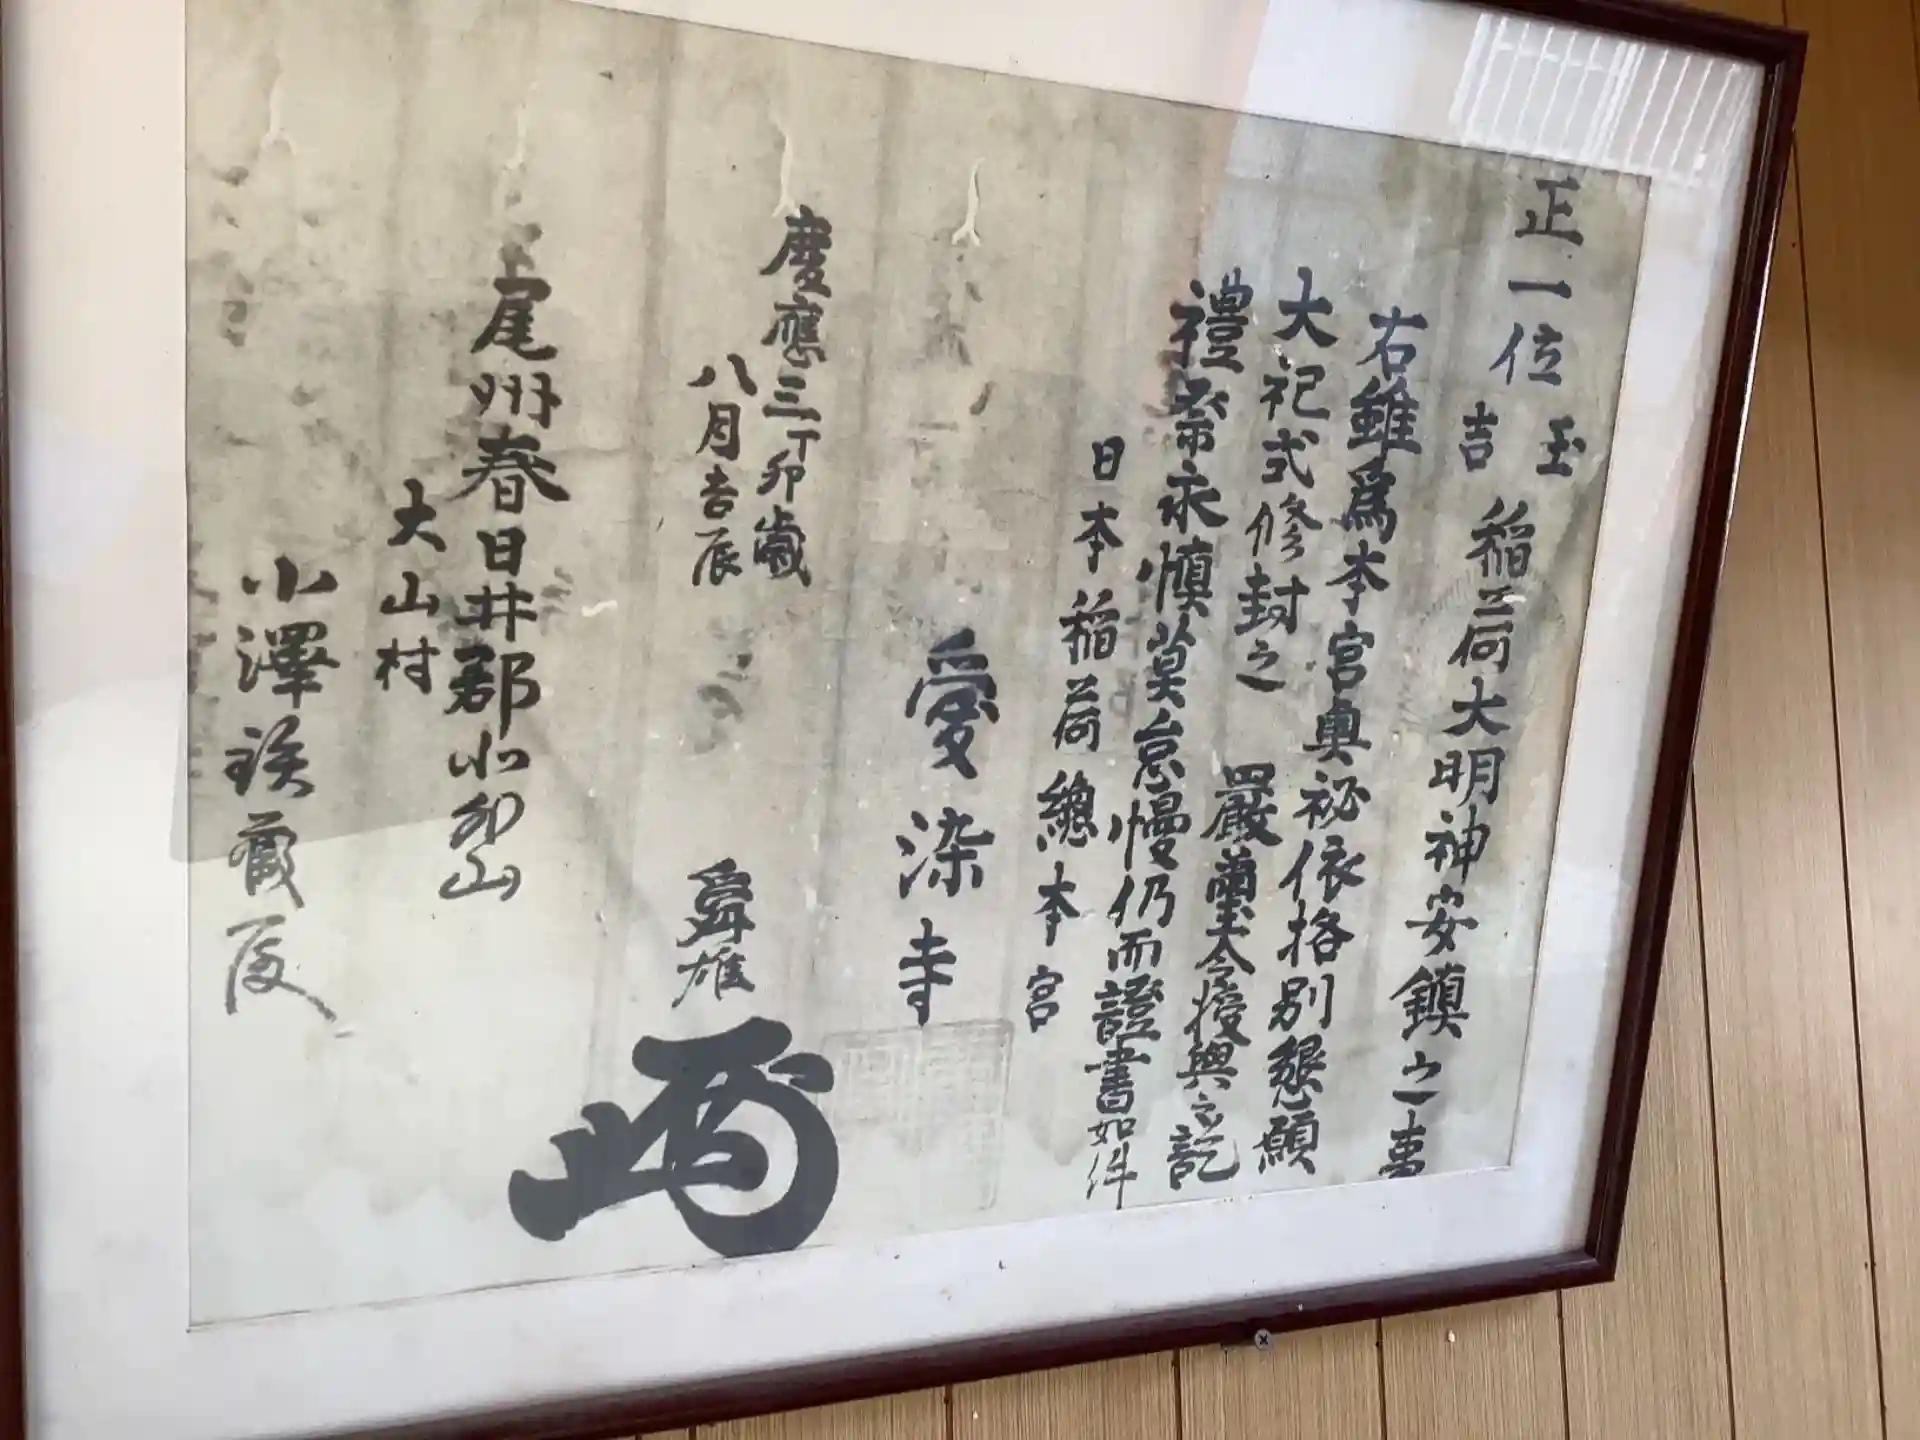 正一位
玉
吉
稲荷大明神安鎮之事
右雖為本宮奥秘依格別懇願
大祀式修封之 嚴璽令授與之訖
禮祭永慎莫怠慢仍而證書如件
日本稲荷總本宮
愛染寺
慶應三丁卯歳
八月吉辰
舜雄
尾州春日井郡
大山村
小澤